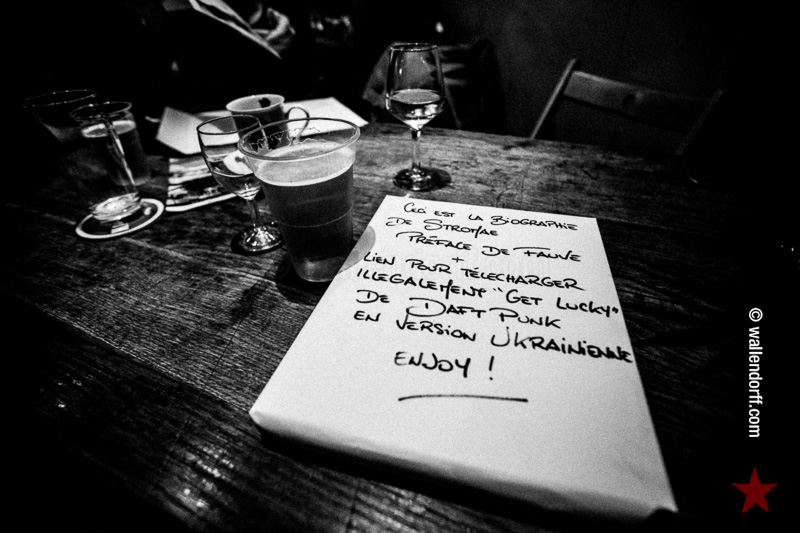 CECI EST LA BIOGRAPHIE
DE STROMAE
PRÉFACE DE FAUVE
+
LIEN POUR TÉLECHARGER
ILLEGALEMENT "GET LUCKY"
DE DAFT PUNK
EN VERSION UKRAINIENNE
ENJOY !
© wallendorff.com